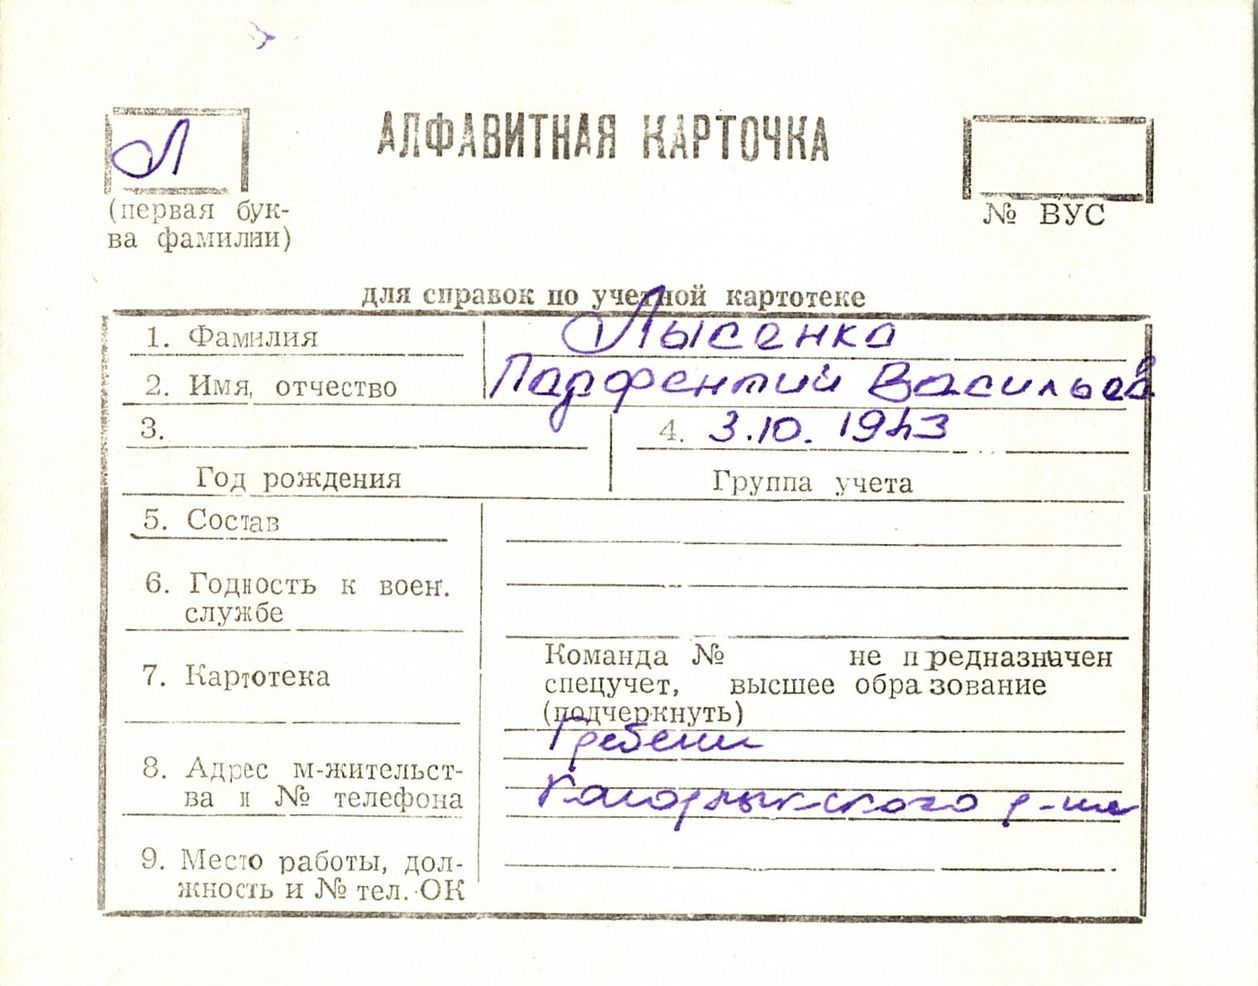 Л
АЛФАВИТНАЯ КАРТОЧКА
(первая бук-
ва фамилии)
№ ВУС
для справок по учетной картотеке
1. Фамилия Лысенко
2. Имя, отчество Парфентий Васильев
3. 4. 3.10.1943
Год рождения Группа учета
5. Состав
6. Годность к воен.
службе
Команда № не предназначен
7. Картотека спецучет, высшее образование
(подчеркнуть)
Гребени
8. Адрес м-жительст-
ва и № телефона Кагарлыкского р-на
9. Место работы, дол-
жность и № тел. ОК